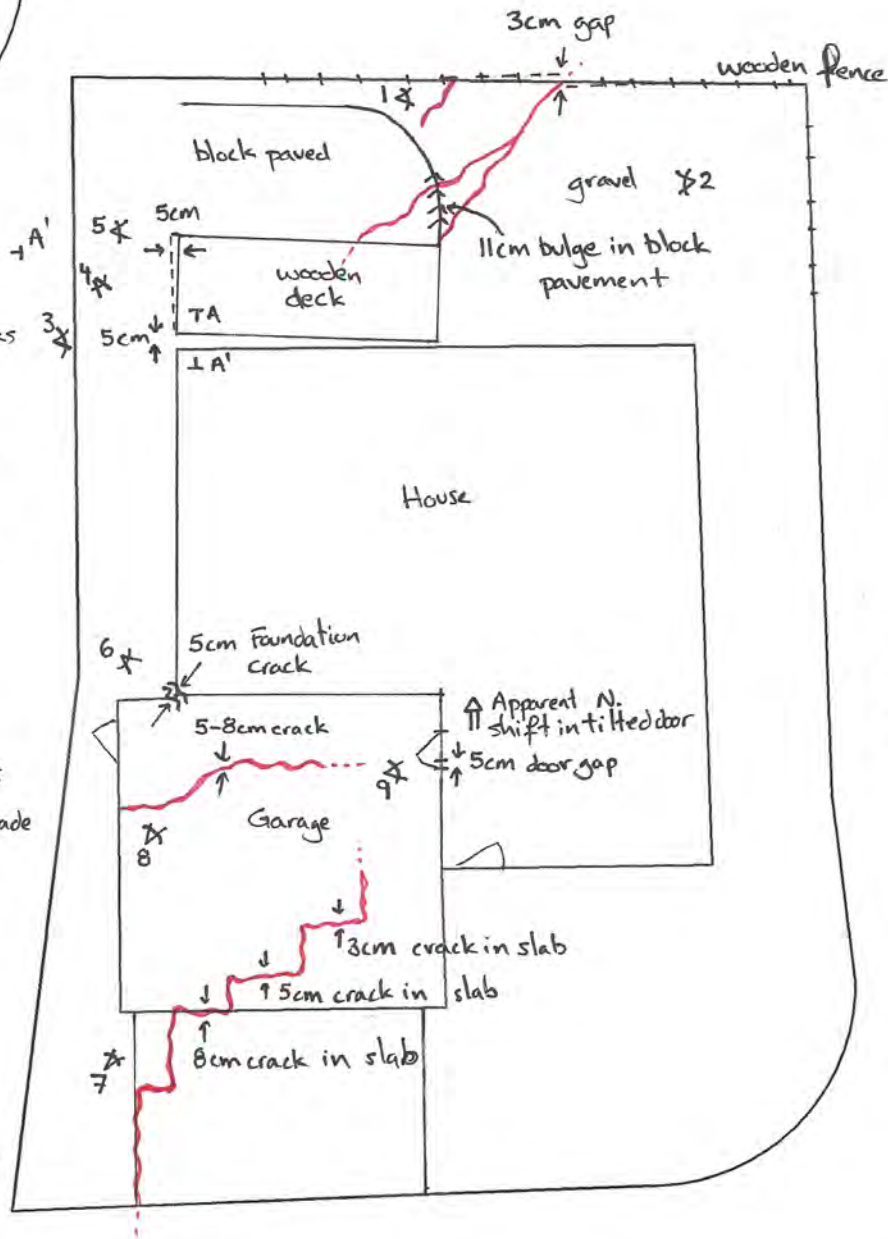 3cm gap
wooden fence
1
block paved
gravel 2
5cm
5
A'
11cm bulge in block
pavement
wooden
deck
4
3
5cm
A
A'
House
6
5cm Foundation
crack
Apparent N.
shift in tilted door
5-8cm crack
5cm door gap
9
ade
Garage
8
3cm crack in slab
5cm crack in slab
8cm crack in slab
7